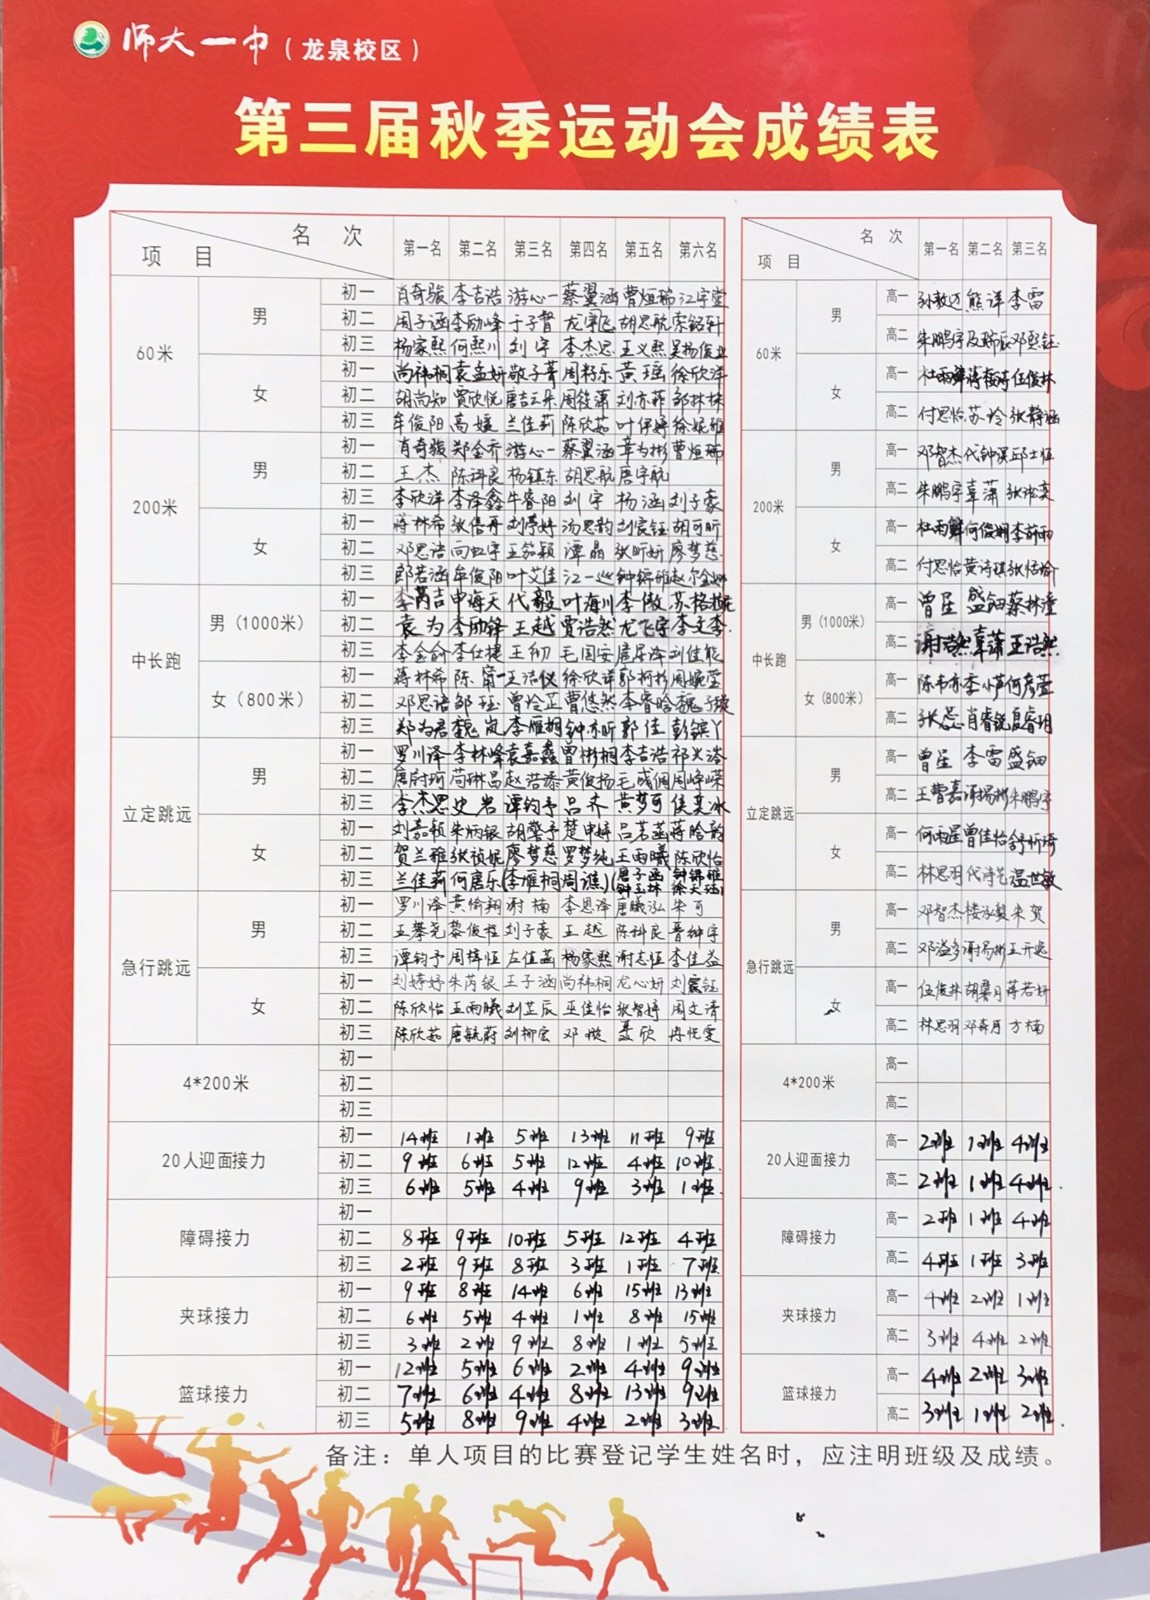 师大一中（龙泉校区）
第三届秋季运动会成绩表
名 次
项 目
第一名 第二名 第三名 第四名 第五名 第六名
60米
男
初一 肖奇骏 李吉浩 游心一 蔡翼涵 曹烜瑞 江宇堂
初二 周子涵 李励峰 于子督 龙宇飞 胡思航
初三 杨家熙 何熙川 刘宇 李杰思 王义熙
女
初一 尚祎桐 袁孟妍 敬子菁 黄瑶 徐欣洋
初二 胡尚知 贾欣悦 刘亦菲 邹林林
初三 牟俊阳 高媛 兰佳莉 陈欣茹 叶伊婷
200米
男
初一 肖奇骏 郑全乔 游心一 蔡翼涵 章为彬 曹烜瑞
初二 王杰 陈科良 杨镇东 胡思航 唐宇航
初三 李欣洋 李泽鑫 牛睿阳 刘宇 杨涵 刘子豪
女
初一 蒋林希 张倍再 刘婷妤 汤思韵 刘宸钰 胡可昕
初二 邓思语 向虹宇 王茹颖 谭晶 张昕妍 廖梦慈
初三 郎若涵 牟俊阳 叶艾佳 江一巡
中长跑
男（1000米）
初一 李芮吉 申海天 代毅 叶海川 李傲
初二 袁为 李励锋 王越 贾浩然 龙飞宇 李文李
初三 李金俞 李仕捷 王彻 毛国安 刘佳能
女（800米）
初一 蒋林希 王洁仪 徐欣洋 郭柯杉
初二 邓思语 邹珏 曾冷芷 曹悠然 李睿晗
初三 郑为君 魏岚 李雁桐 钟亦昕 郭佳
立定跳远
男
初一 罗川泽 李林峰 袁嘉鑫 曾彬桐 李吉浩
初二 唐尉珂 苟琳昌 赵浩添 黄俊扬 周峥嵘
初三 李杰思 史岩 谭钧予 吕齐 黄梦可 侯奕冰
女
初一 刘嘉颖 朱炳银 胡馨予 楚申婷 吕茗菡 蒋晗韵
初二 贺兰雅 张祯妮 廖梦慈 罗梦纯 王雨曦 陈欣怡
初三 兰佳莉 何唐乐 (李雁桐 周谯) (唐子涵 钟锦雅 钟玉林
急行跳远
男
初一 罗川泽 黄俞翔 谢楠 李恩泽 唐曦泓 朱可
初二 王攀尧 黎俊程 刘子豪 王越 陈科良 晋钟宇
初三 谭钧予 周梓恒 左佳菡 杨家熙 谢志恒 李佳益
女
初一 刘婷妤 朱芮银 王子涵 尚祎桐 龙心妍 刘宸钰
初二 陈欣怡 王雨曦 刘芷辰 巫佳怡 张智婷 周文清
初三 陈欣茹 唐毓蔚 刘柳宏 聂欣 冉悦雯
4*200米
初一
初二
初三
20人迎面接力
初一 14班 1班 5班 13班 11班 9班
初二 9班 6班 5班 12班 4班 10班
初三 6班 5班 4班 9班 3班 1班
障碍接力
初一
初二 8班 9班 10班 5班 12班 4班
初三 2班 9班 8班 3班 1班 7班
夹球接力
初一 9班 8班 14班 6班 15班 13班
初二 6班 5班 4班 1班 8班 15班
初三 3班 2班 9班 8班 1班 5班
篮球接力
初一 12班 5班 6班 2班 4班 9班
初二 7班 6班 4班 8班 13班 9班
初三 5班 8班 9班 4班 2班 3班
名 次
项 目
第一名 第二名 第三名
60米
男
高一 孙敖迈 熊洋 李雷
高二 朱鹏宇
女
高一 伍俊林
高二 付思怡 苏冷 张静涵
200米
男
高一 邓智杰 代钟汉 邱士恒
高二 朱鹏宇 辜萧 张浓奕
女
高一 杜雨鲜 李蔚雨
高二 付思怡 黄诗琪 张恬愉
中长跑
男（1000米）
高一 曾呈 盛钿 蔡林潼
高二 谢浩然 辜萧 王浩然
女（800米）
高一 陈韦亦 李小芦 何彦萱
高二 张蕊 肖睿锐 夏睿玥
立定跳远
男
高一 曾呈 李雷 盛钿
高二 王曹嘉 谢易彬 朱鹏宇
女
高一 何雨星 曾佳怡 舒忻琦
高二 林思羽 代诗艺 温世敏
急行跳远
男
高一 邓智杰 楼泓契 朱贺
高二 邓溢多 谢易彬 王开越
女
高一 伍俊林 胡馨月 蒋若妍
高二 林思羽 邓森月 方楠
4*200米
高一
高二
20人迎面接力
高一 2班 1班 4班
高二 2班 1班 4班
障碍接力
高一 2班 1班 4班
高二 4班 1班 3班
夹球接力
高一 4班 2班 1班
高二 3班 4班 2班
篮球接力
高一 4班 2班 3班
高二 3班 1班 2班
备注：单人项目的比赛登记学生姓名时，应注明班级及成绩。